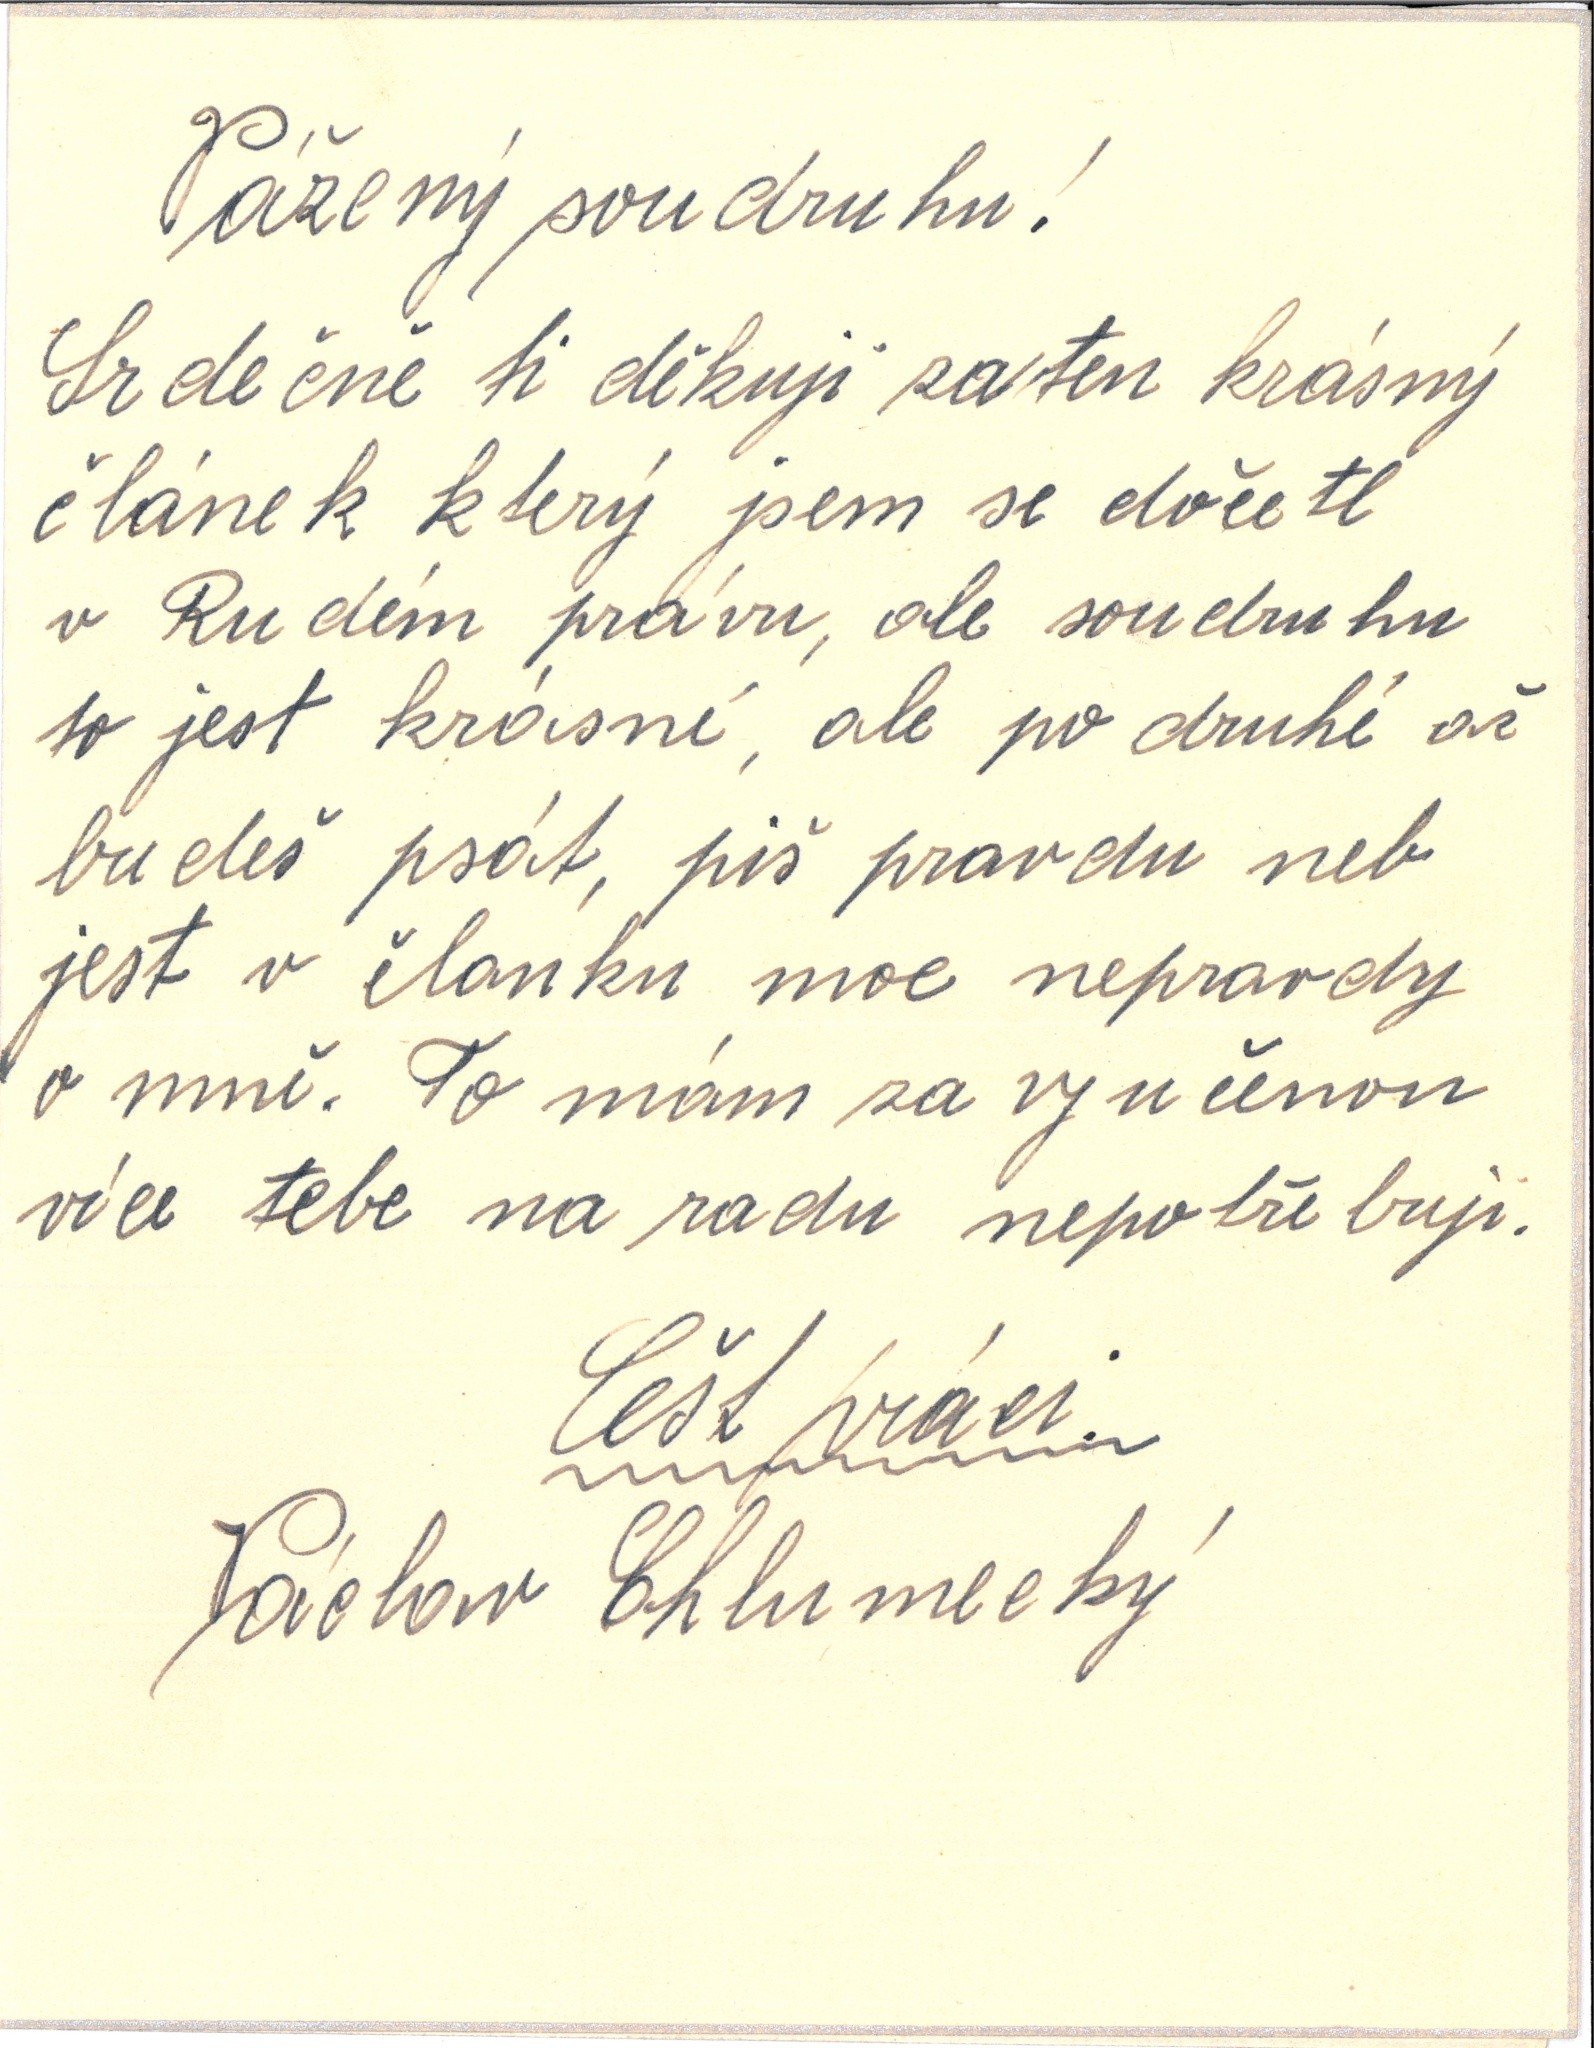 Vážený soudruhu!
Srdečně ti děkuji za ten krásný
článek který jsem se dočetl
v Rudém právu, ale soudruhu
to jest krásné, ale po druhé až
budeš psát, piš pravdu neb
jest v článku moc nepravdy
o mně. To mám za vyučenou
více tebe na radu nepotřebuji.
Čest práci.
Václav Chlumecký